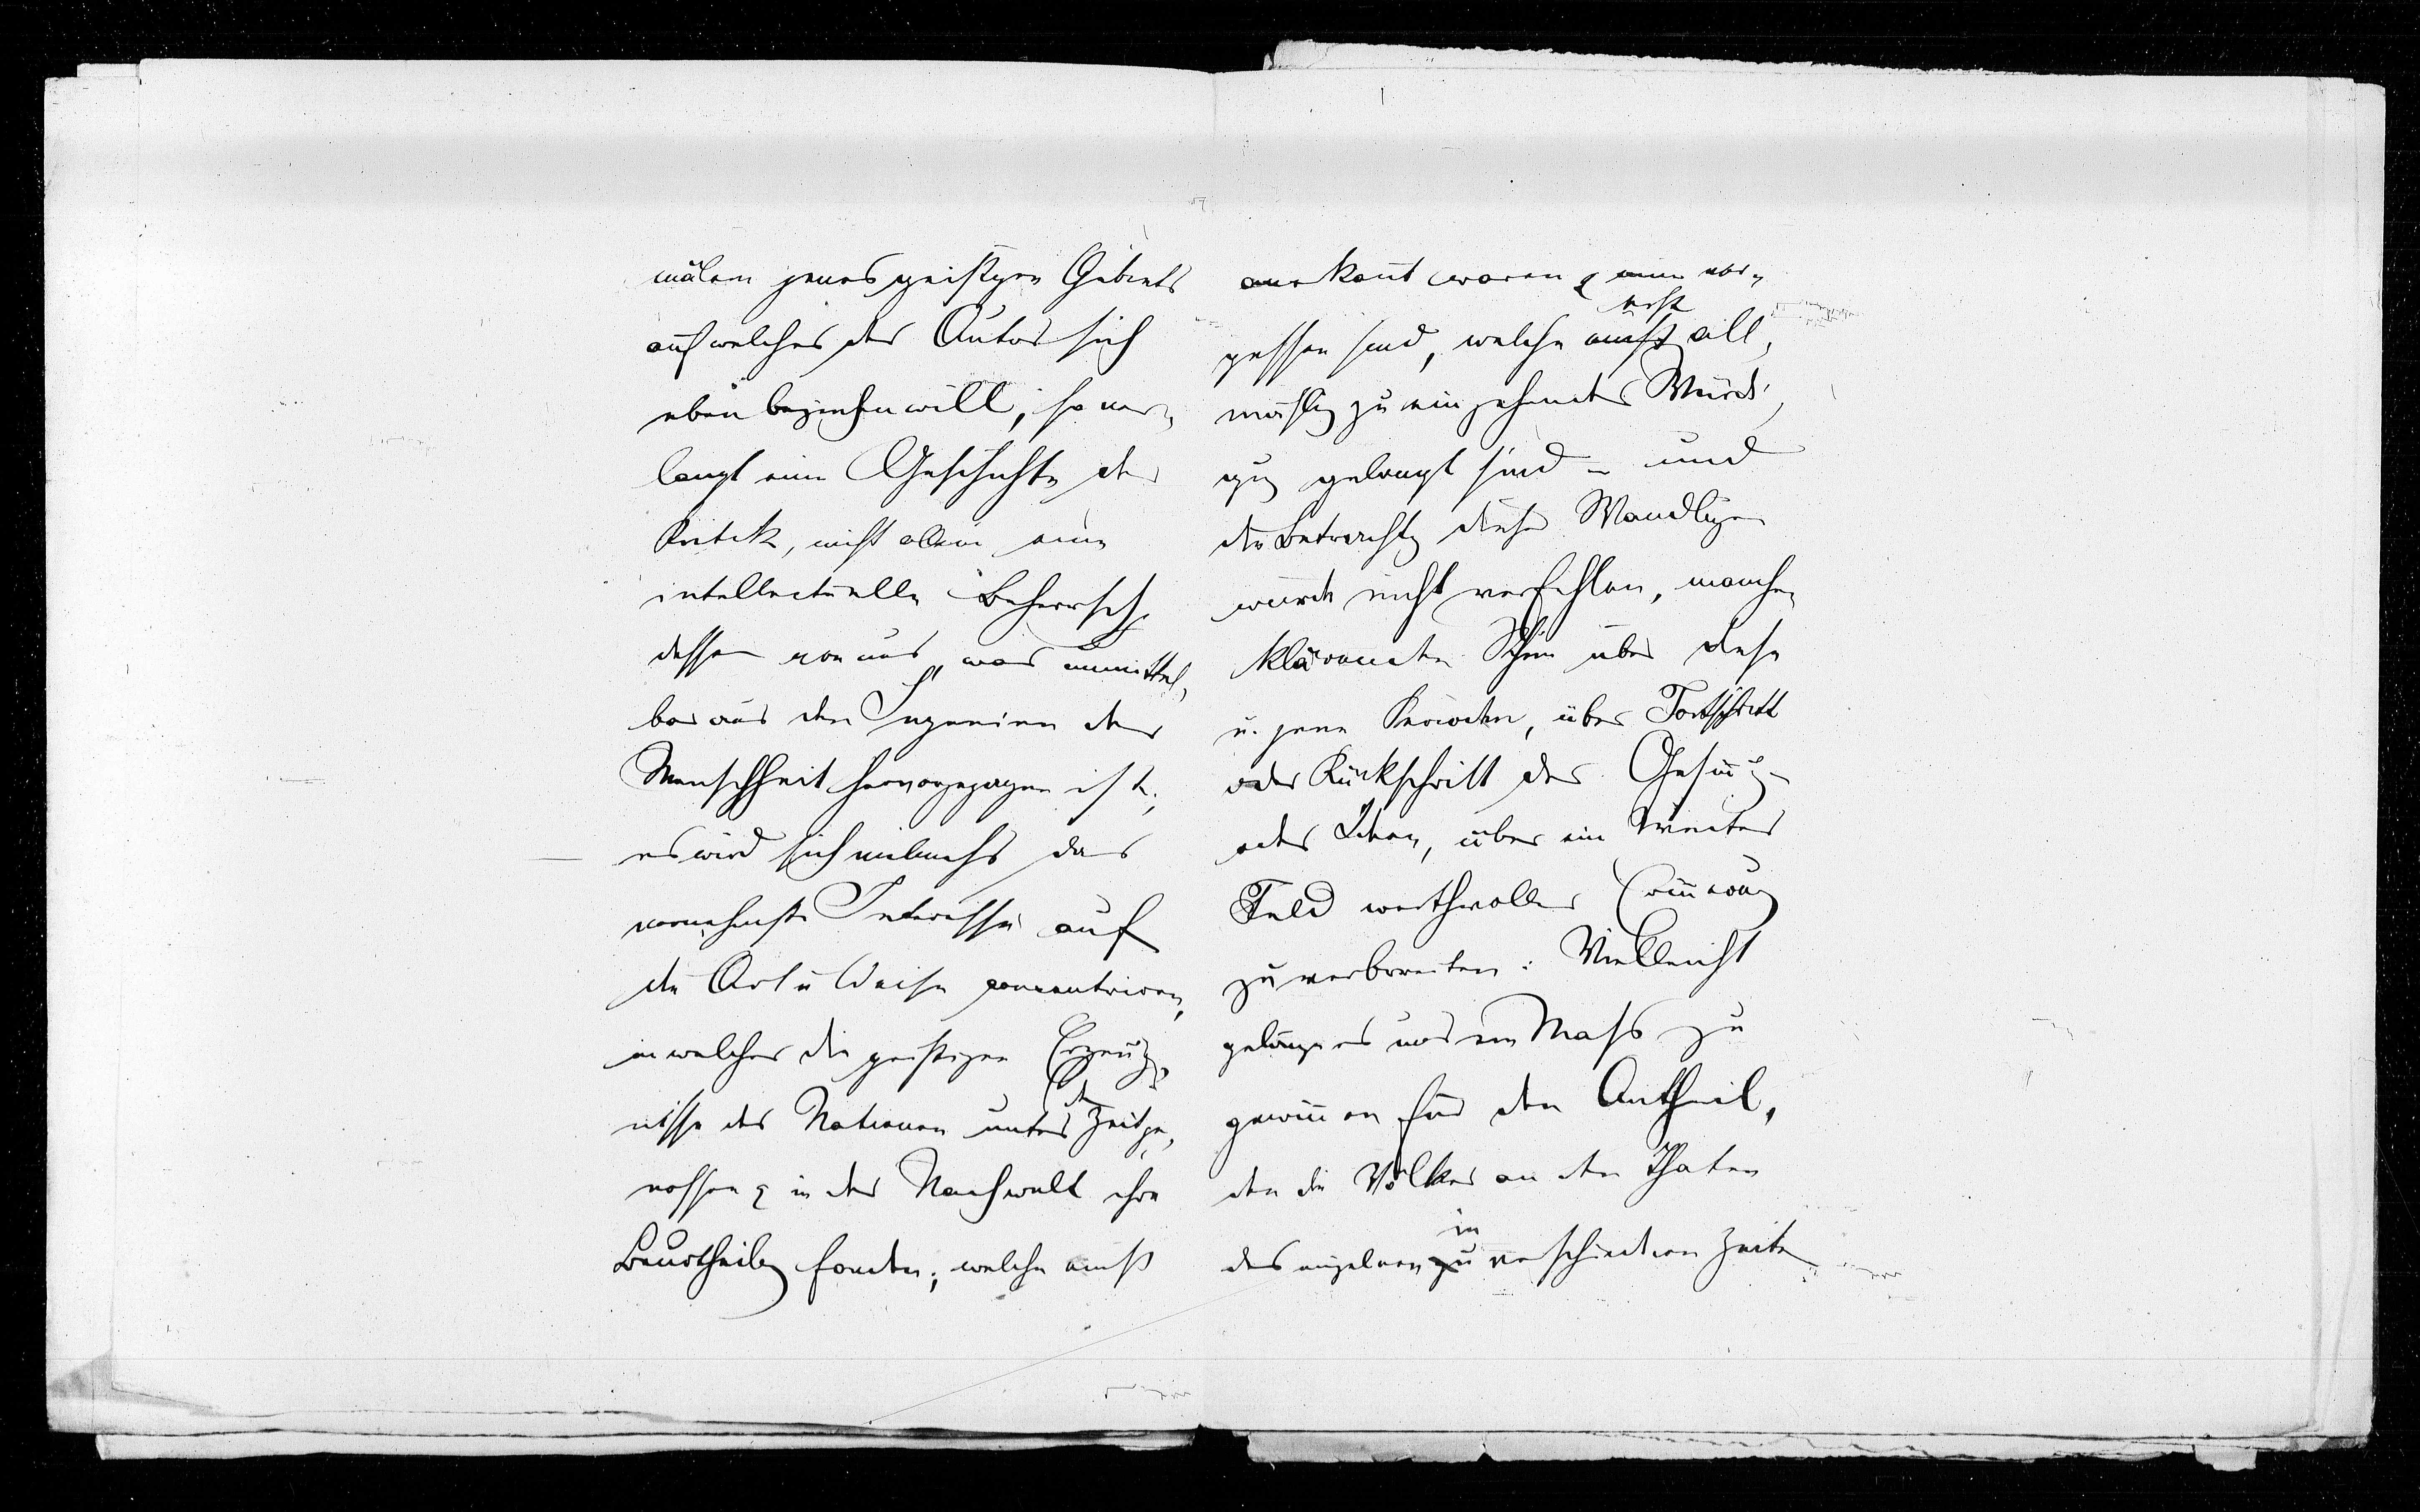 mälern jenes geistigen Gebiets
auf welches der Autor sich
eben beziehn will, so ver-
langt eine Geschichte der
Kritik, nicht allein eine
intellectuelle Beherrschg
dessen voraus, was unmittel-
bar aus den Ingenien der
Menschheit hervorgegangen ist;
es wird sich vielmehr das
vornehmste Interesse auf
die Art u Weise concentriren,
in welcher die geistigen Erzeug-
nisse der Nationen unter den Zeitge-
nossen & in der Nachwelt ihre
Beurtheilg fanden; welche einst
anerkannt waren & nun ver-
gessen sind, welche einst erst all-
mählig zu eingehender Würdi-
gug gelangt sind – und
die Betrachtg dieser Wandlungen
würde nicht verfehlen, manchen
klärenden Schein über diese
u. jene Perioden, über Fortschritt
oder Rückschritt der Gesinnung
oder Ideen, über ein weites
Feld werthvoller
zu verbreiten: Vielleicht
gelänge es uns ein Mass zu
gewinnen für den Antheil,
den die Völker an den Thaten
der einzelnen zu in verschiedenen Zeiten